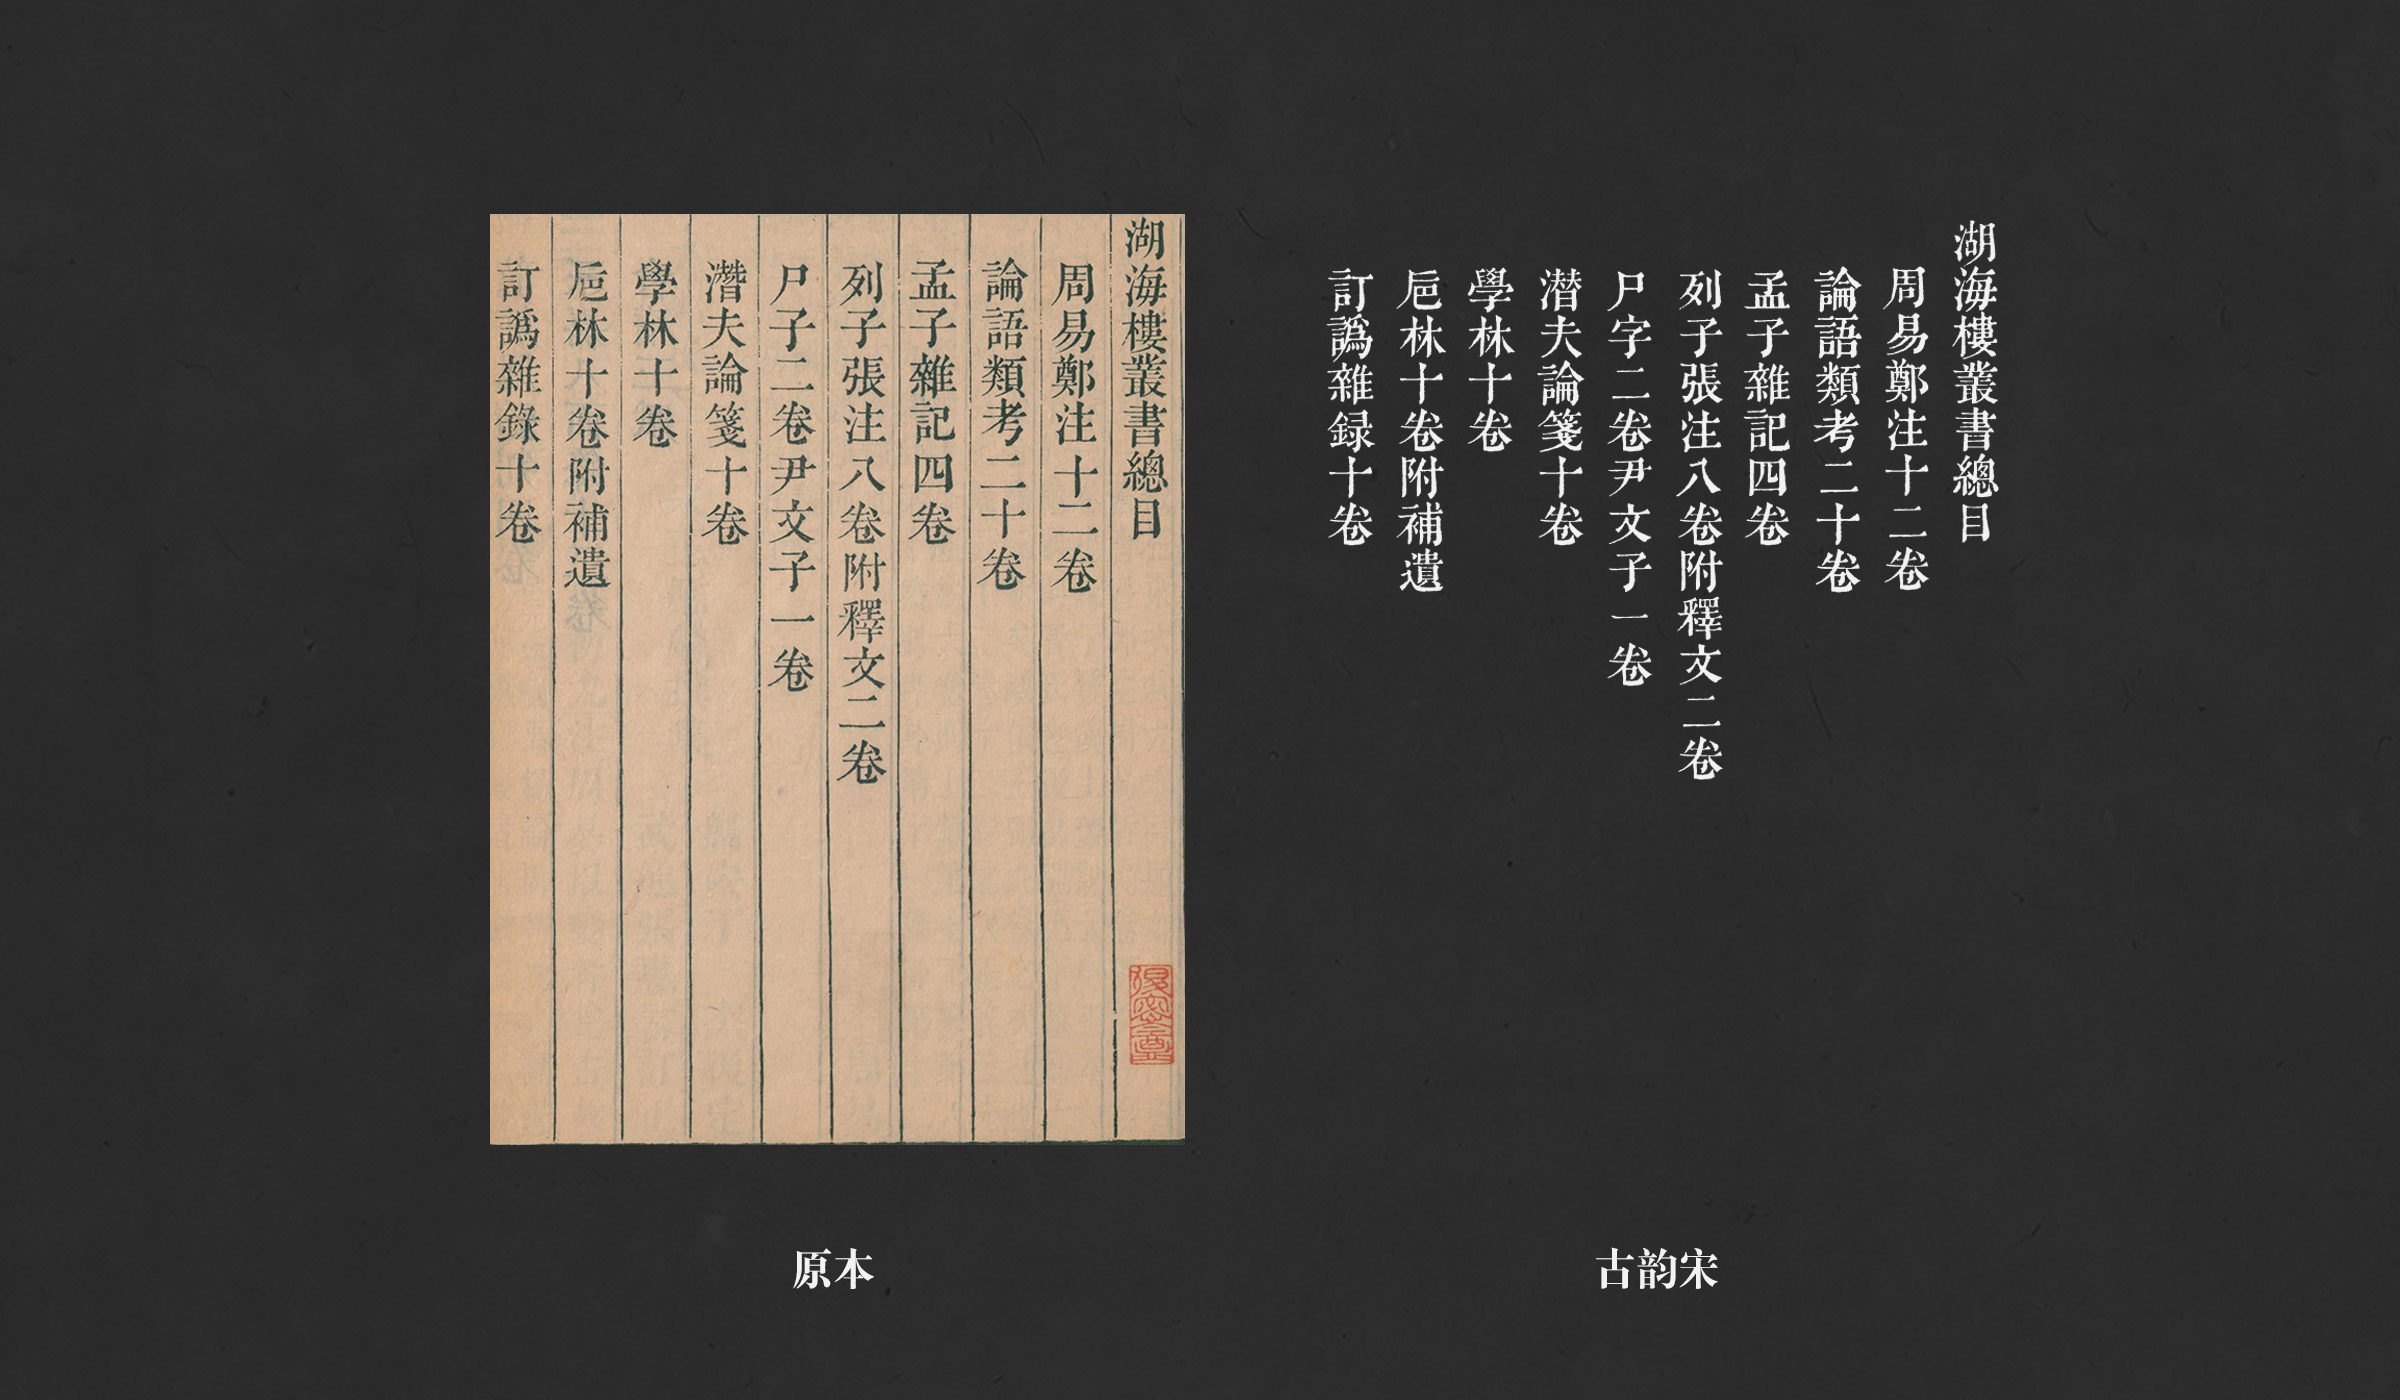 湖海樓叢書總目
周易鄭注十二卷
論語類考二十卷
孟子雜記四卷
列子張注八卷附釋文二卷
尸子二卷尹文子一卷
潛夫論箋十卷
學林十卷
巵林十卷附補遺
訂譌雜錄十卷
原本
湖海樓叢書總目
周易鄭注十二卷
論語類考二十卷
孟子雜記四卷
列子張注八卷附釋文二卷
尸字二卷尹文子一卷
潜夫論箋十卷
學林十卷
巵林十卷附補遺
訂譌雜録十卷
古韵宋